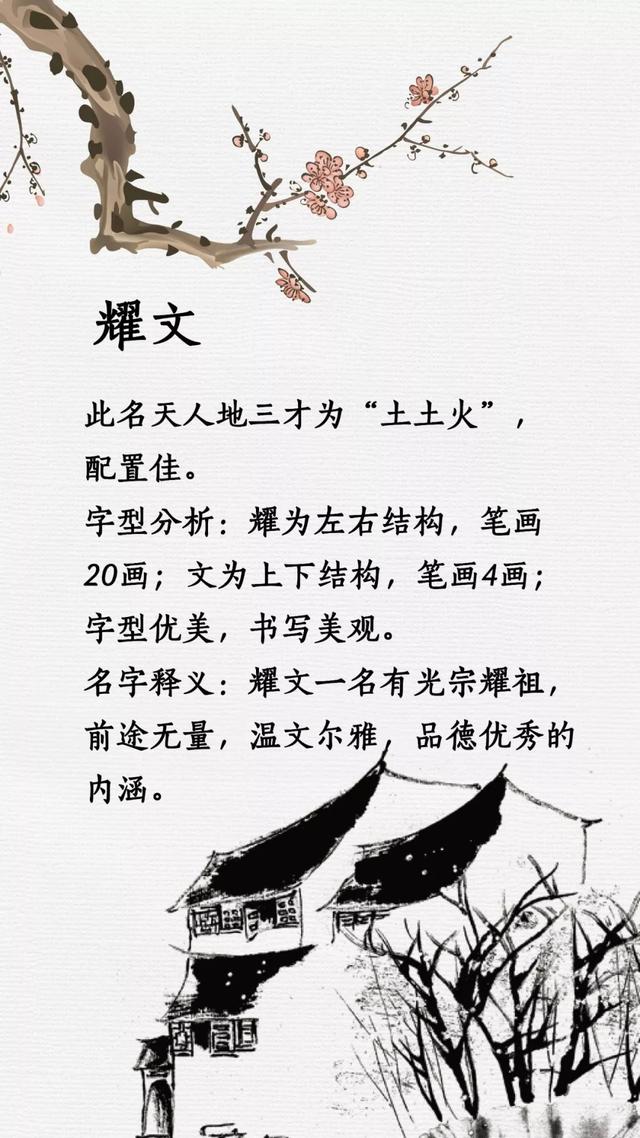 耀文
此名天人地三才为“土土火”，
配置佳。
字型分析：耀为左右结构，笔画
20画；文为上下结构，笔画4画；
字型优美，书写美观。
名字释义：耀文一名有光宗耀祖，
前途无量，温文尔雅，品德优秀的
内涵。